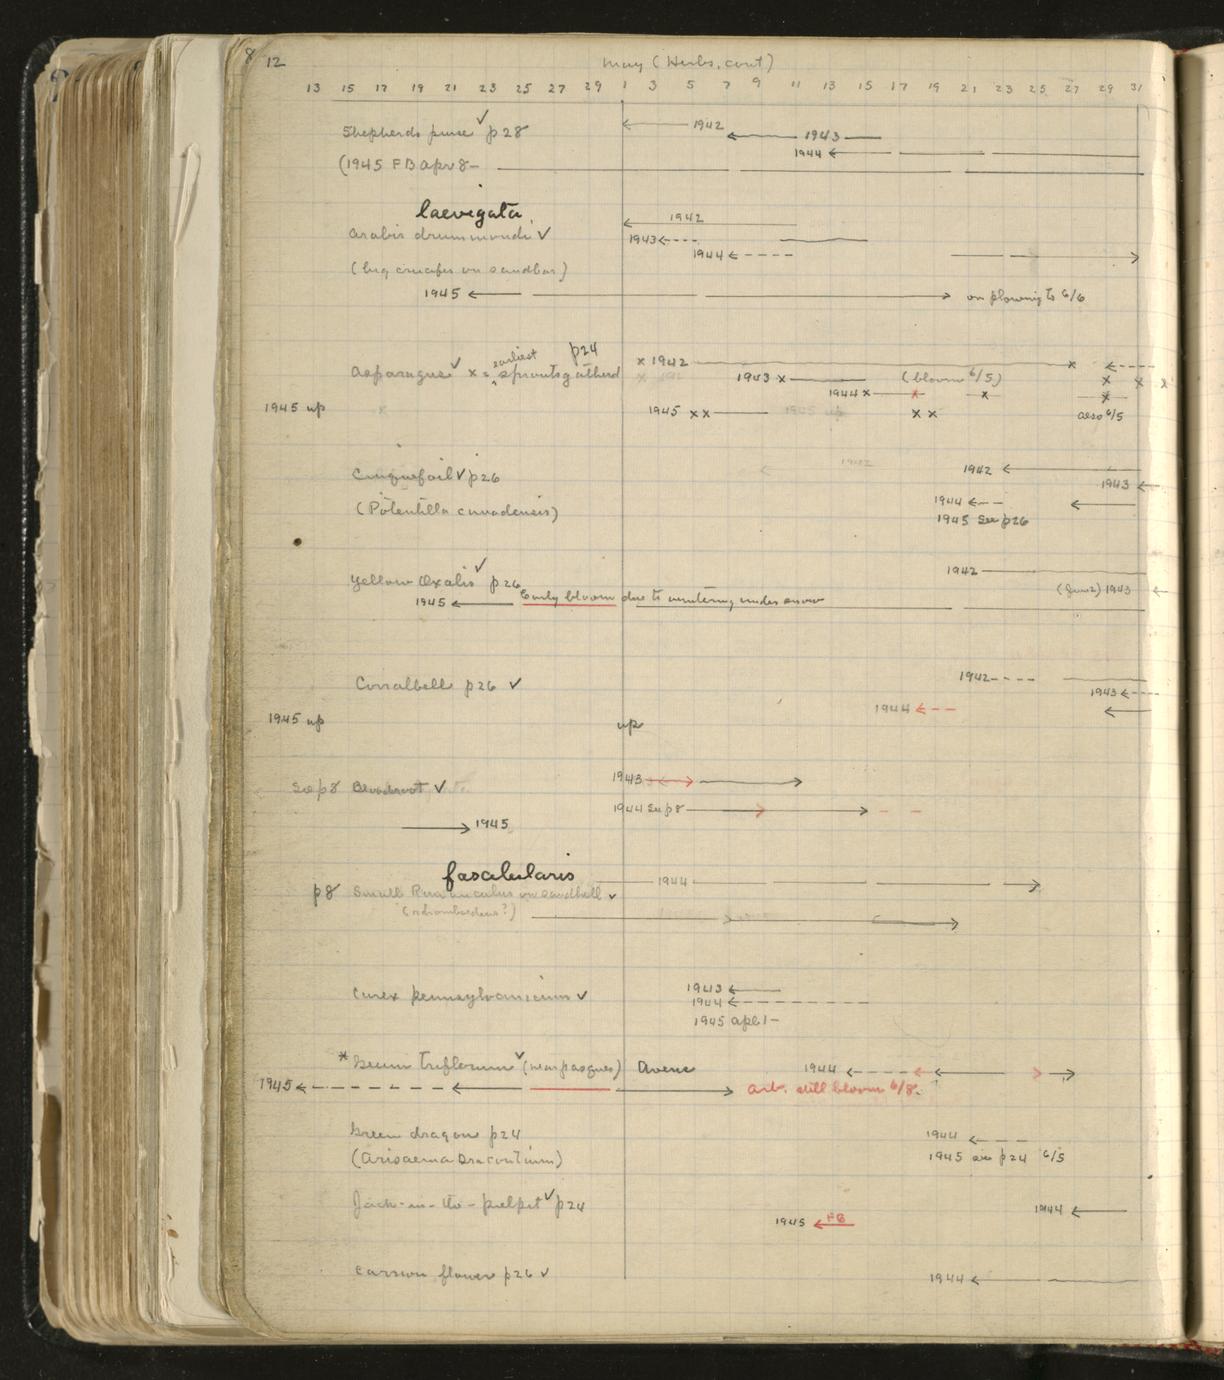 8 12 May (Herbs, cont)
13 15 17 19 21 23 25 27 29 1 3 5 7 9 11 13 15 17 19 21 23 25 27 29 31
Shepherds purse ✓ p28 1942 1943
1944
(1945 FB Apr 8-
laevigata 1942
Arabis drummondi ✓ 1943
1944
(big crucifer on sandbar)
1945 on plowing to 6/6
p24
earliest
Asparagus ✓ x = sprouts gathered x 1942 x
1943 x (bloom 6/5) x x x
1944 x x x x
1945 up 1945 x x 1945 up x x also 6/5
Cinquefoil ✓ p26 1942 1942
1943
(Potentilla canadensis) 1944
1945 See p26
Yellow Oxalis ✓ p26 1942
Early bloom due to wintering under snow (June 2) 1943
1945
Corralbell p26 ✓ 1942
1943
1944
1945 up up
See p8 Bloodroot ✓ 1943
1944 See p8
1945
fascicularis
p8 Small Ranunculus on sandhill ✓ 1944
(rhomboideus?)
Carex pennsylvanicum ✓ 1943
1944
1945 Apl 1-
* Geum triflorum ✓ (near pasques) Avens 1944
1945 arb. still bloom 6/8.
Green dragon p24 1944
(Arisaema Dracontium) 1945 see p24 6/5
Jack-in-the-pulpit ✓ p24 1944
1945 FB
Carrion flower p26 ✓ 1944